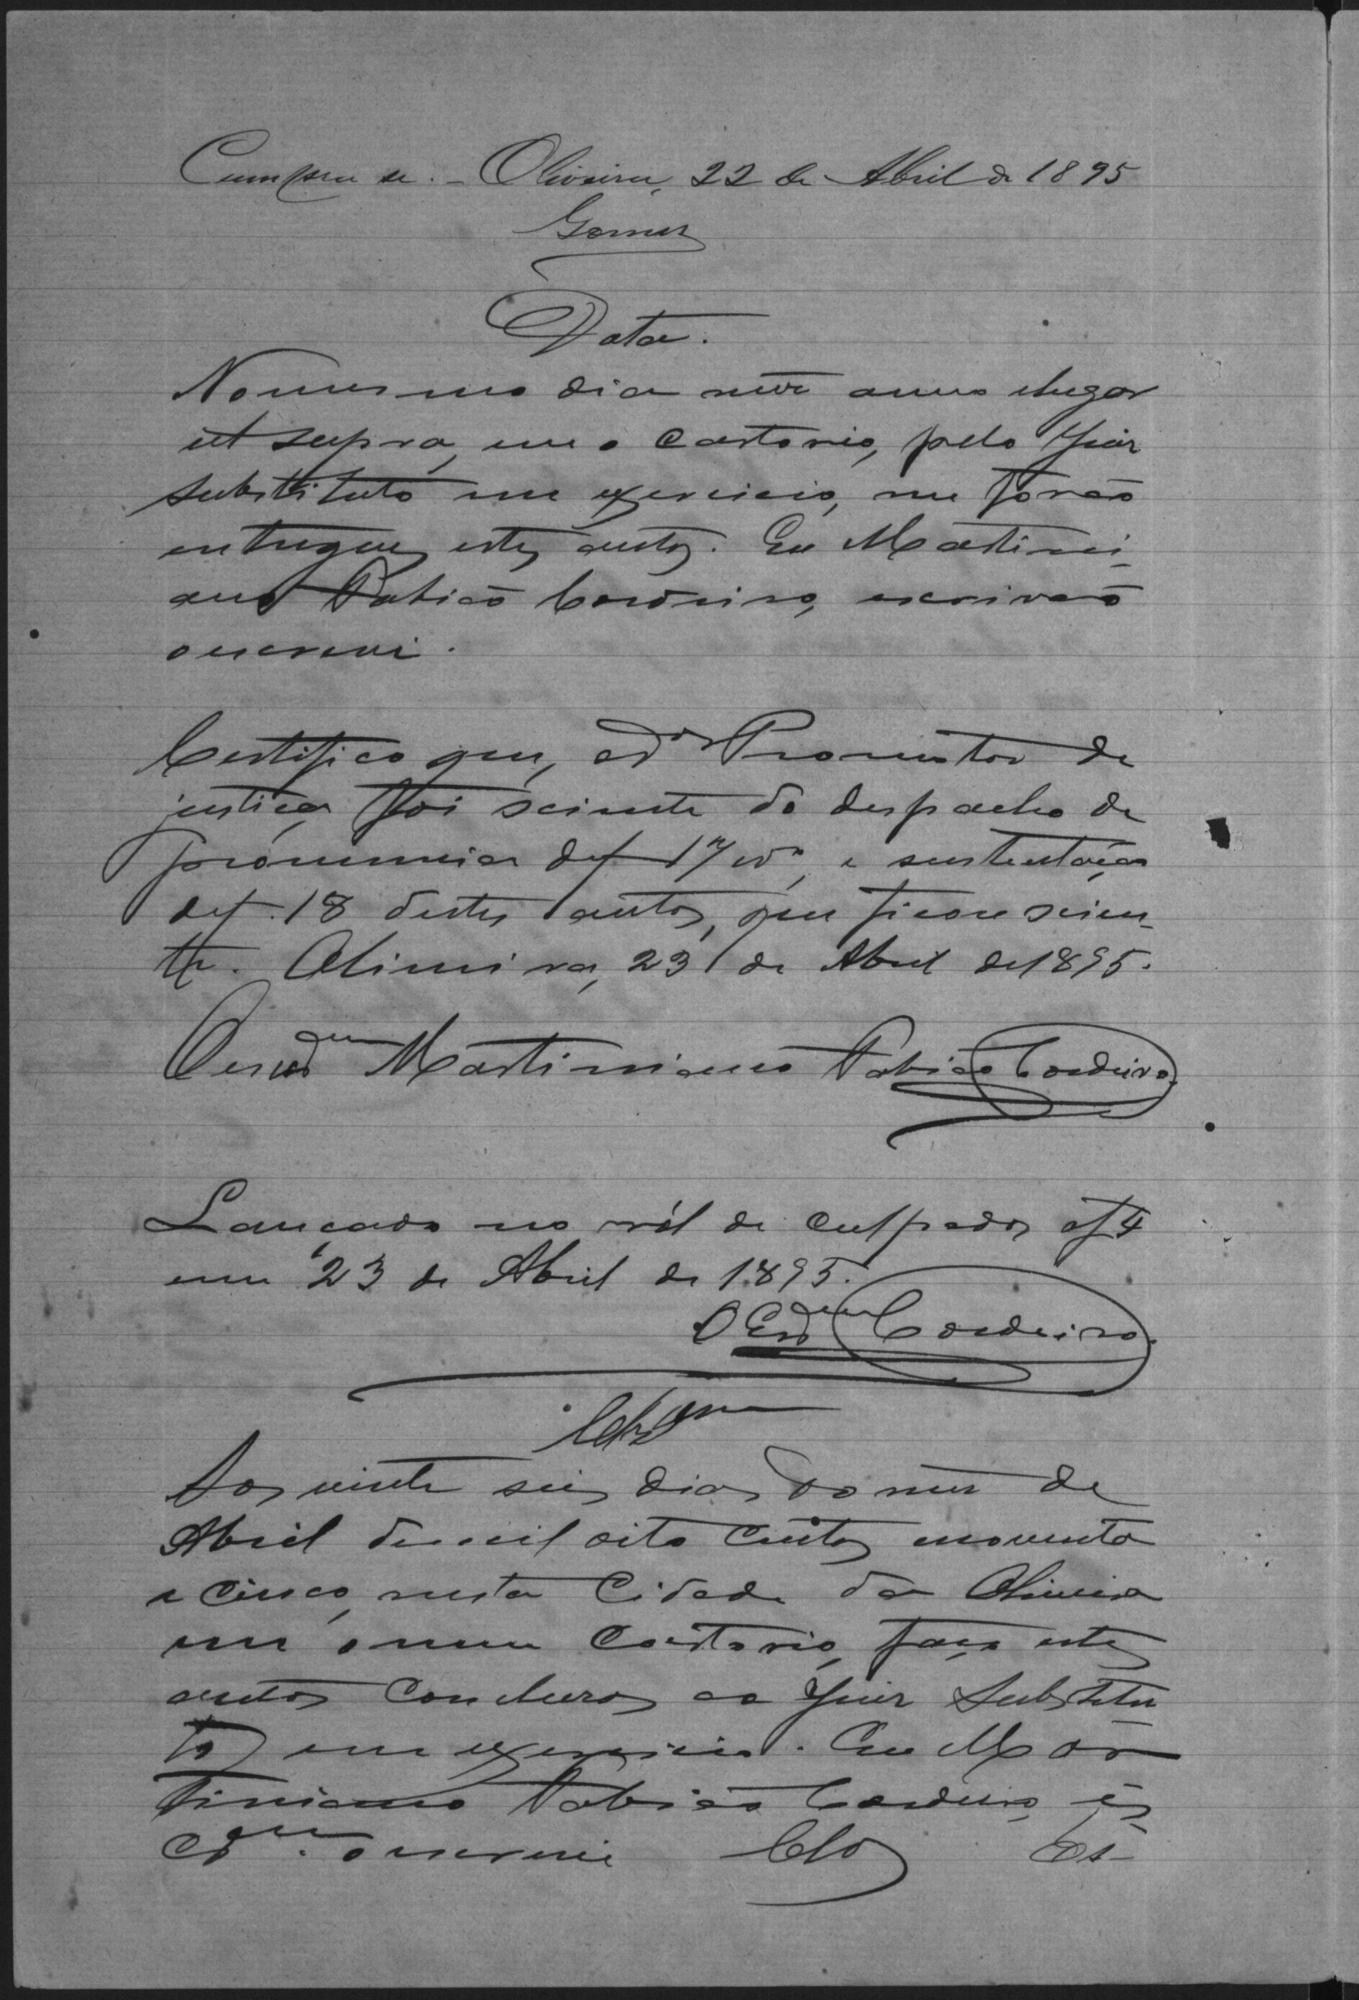 Cumpra se. - Oliveira, 22 de Abril de 1895
Gomes
Data.
No mesmo dia mez anno elugar
ut supra, em o cartorio, pelo Juiz
substituto em exercicio, me forão
entregues estes autos. Eu Martini-
ano Fabião Cordeiro, escrivão
o escrevi.
Certifico que, o dor Promotor de
justiça foi sciente do despacho de
pronuncia de f 17 vo, e sustentação
de f. 18 destes autos, que ficou scien-
te. Oliveira, 23 de Abril de 1895.
O escram Martiniano Fabião Cordeiro.
Lançado no ról de culpados af 4
em 23 de Abril de 1895.
O Escam Cordeiro.
Clzam
Aos vinte seis dias do mez de
Abril de mil oito centos noventa
e cinco, nesta Cidade da Oliveira
em o meu Cartorio, faço estes
autos conclusos ao Juiz Substitu
to em exercicio. Eu Mar
tiniano Fabião Cordeiro, es
cram. o escrevi Clos